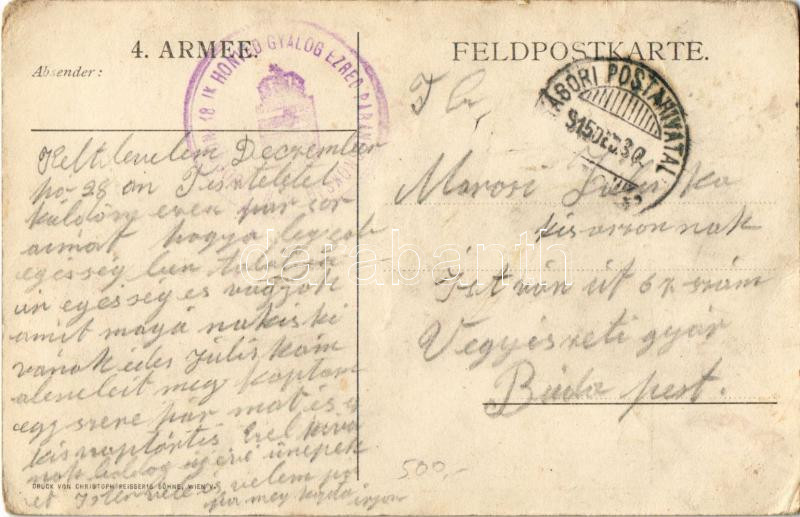 4. ARMEE.
FELDPOSTKARTE.
Absender:
18 IK HONVÉD GYALOG EZRED PARAN
TÁBORI POSTAHIVATAL
915 DEZ 30
T C
Kelt levelem Deczember
ho 28 án Tisztelettel
küldöm ezen pár sor
aimat hogy a legjob
egésség ben
én egésség es vagyok
amit magá nak is ki
vánok édes Juliskám
a leveleit meg kaptam
egyszere pár mat és a
kis naptárt is Ezel kivá
nok boldog új évi ünepek
et Isten vele is velem
pár meg irjon
Marosi Juliska
kisasszonnak
István út 62 szám
Vegyészeti gyár
Buda pest.
500,-
DRUCK VON CHRISTOPH REISSER'S SÖHNE, WIEN V.
darabanth